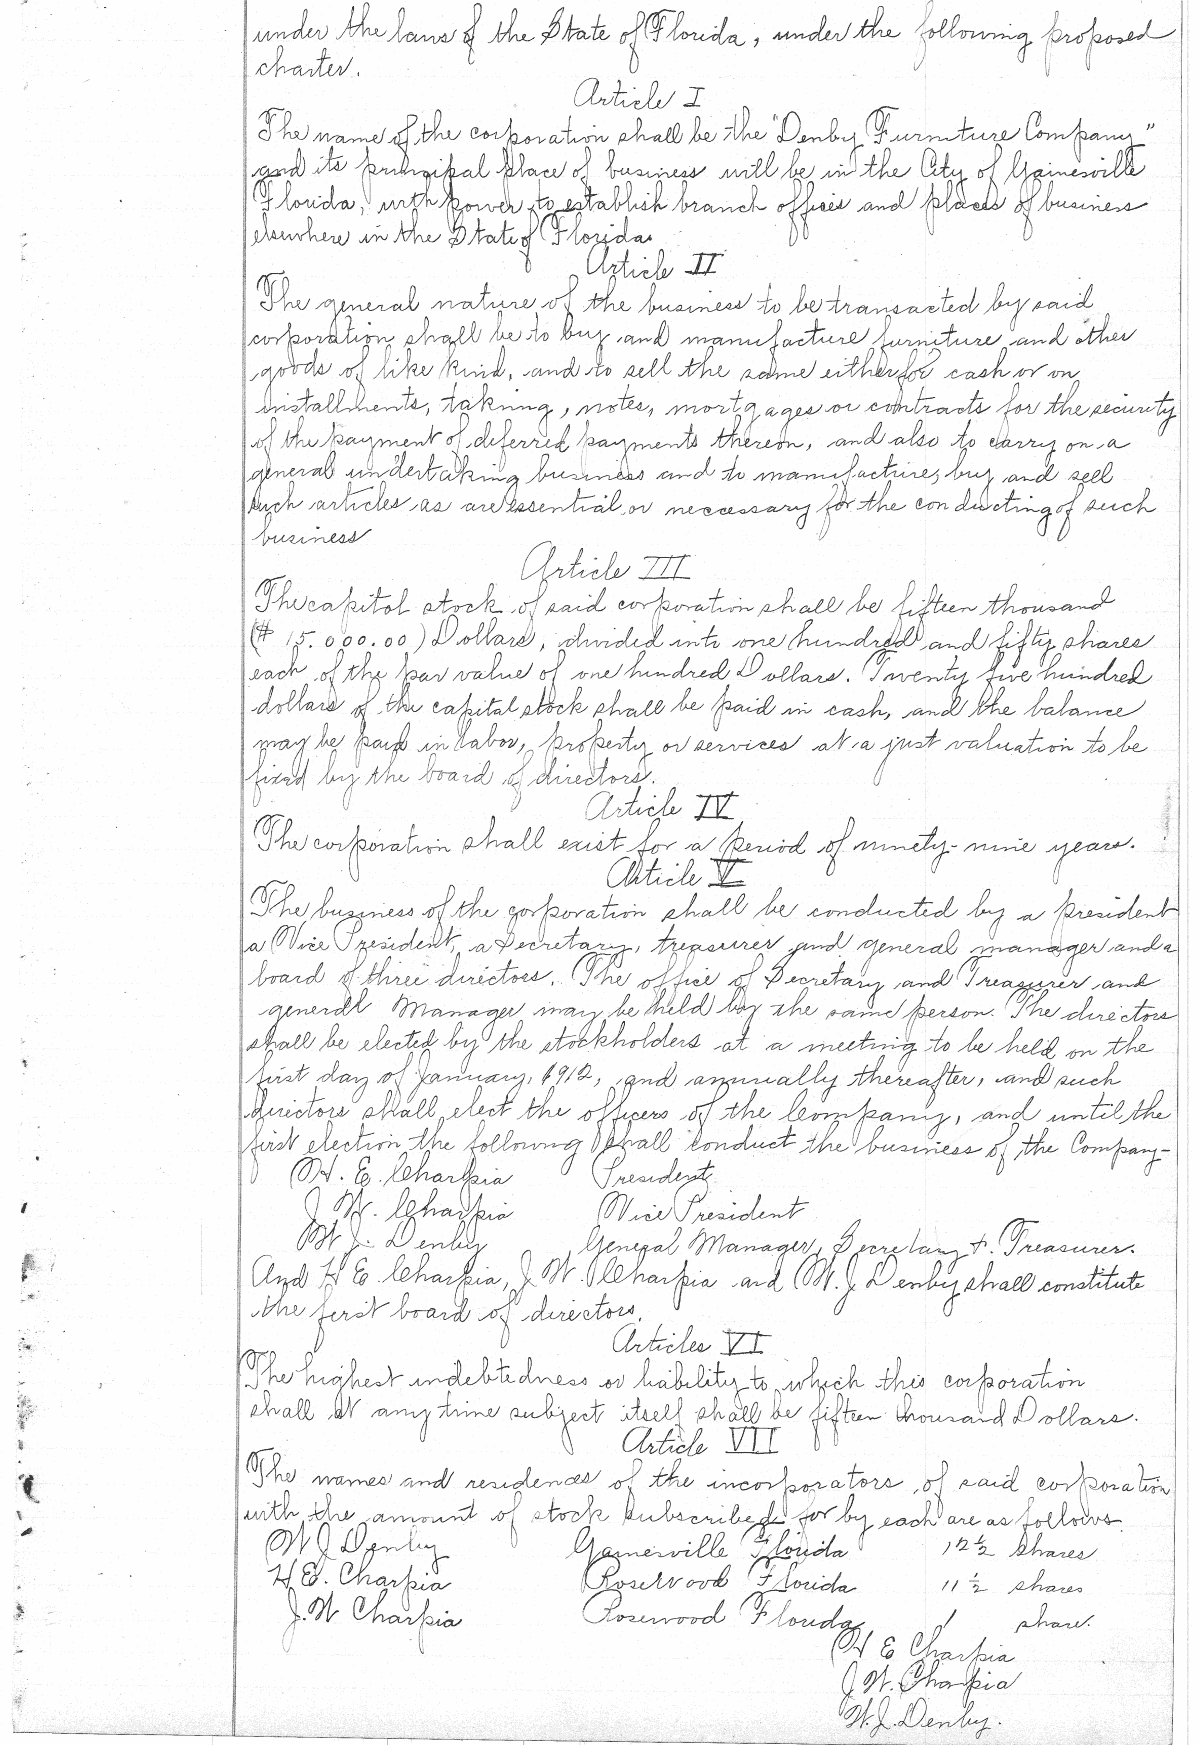 under the laws of the State of Florida, under the following proposed
charter.
Article I
The name of the corporation shall be the "Denby Furniture Company"
and its principal place of business will be in the City of Gainesville
Florida, with power to establish branch offices and places of business
elsewhere in the State of Florida.
Article II
The general nature of the business to be transacted by said
corporation shall be to buy and manufacture furniture and other
goods of like kind, and to sell the same either for cash or on
installments, taking, notes, mortgages or contracts for the security
of the payment of deferred payments thereon, and also to carry on a
general undertaking business and to manufacture, buy and sell
such articles as are essential or neccessary for the conducting of such
business
Article III
The capitol stock of said corporation shall be fifteen thousand
($ 15.000.00) Dollars, divided into one hundred and fifty shares
each of the par value of one hundred Dollars. Twenty five hundred
dollars of the capital stock shall be paid in cash, and the balance
may be paid in labor, property or services at a just valuation to be
fixed by the board of directors.
Article IV
The corporation shall exist for a period of ninety-nine years.
Article V
The business of the corporation shall be conducted by a president
a Vice President, a Secretary, treasurer and general manager and a
board of three directors. The office of Secretary and Treasurer and
general Manager may be held by the same person. The directors
shall be elected by the stockholders at a meeting to be held on the
first day of January, 1912, and annually thereafter, and such
directors shall elect the officers of the Company, and until the
first election the following shall conduct the business of the Company-
H. E. Charpia President
J. W. Charpia Vice President
W. J. Denby General Manager, Secretary + Treasurer.
And H E Charpia, J. W. Charpia and W. J Denby shall constitute
the first board of directors.
Articles VI
The highest indebtedness or liability to which this corporation
shall at any time subject itself shall be fifteen thousand Dollars.
Article VII
The names and residences of the incorporators of said corporation
with the amount of stock subscribed for by each are as follows
W J Denby Gainesville Florida 12 1/2 shares
H E. Charpia Rosewood Florida 11 1/2 shares
J. W Charpia Rosewood Florida 1 share.
H E Charpia
J. W. Charpia
W. J. Denby.